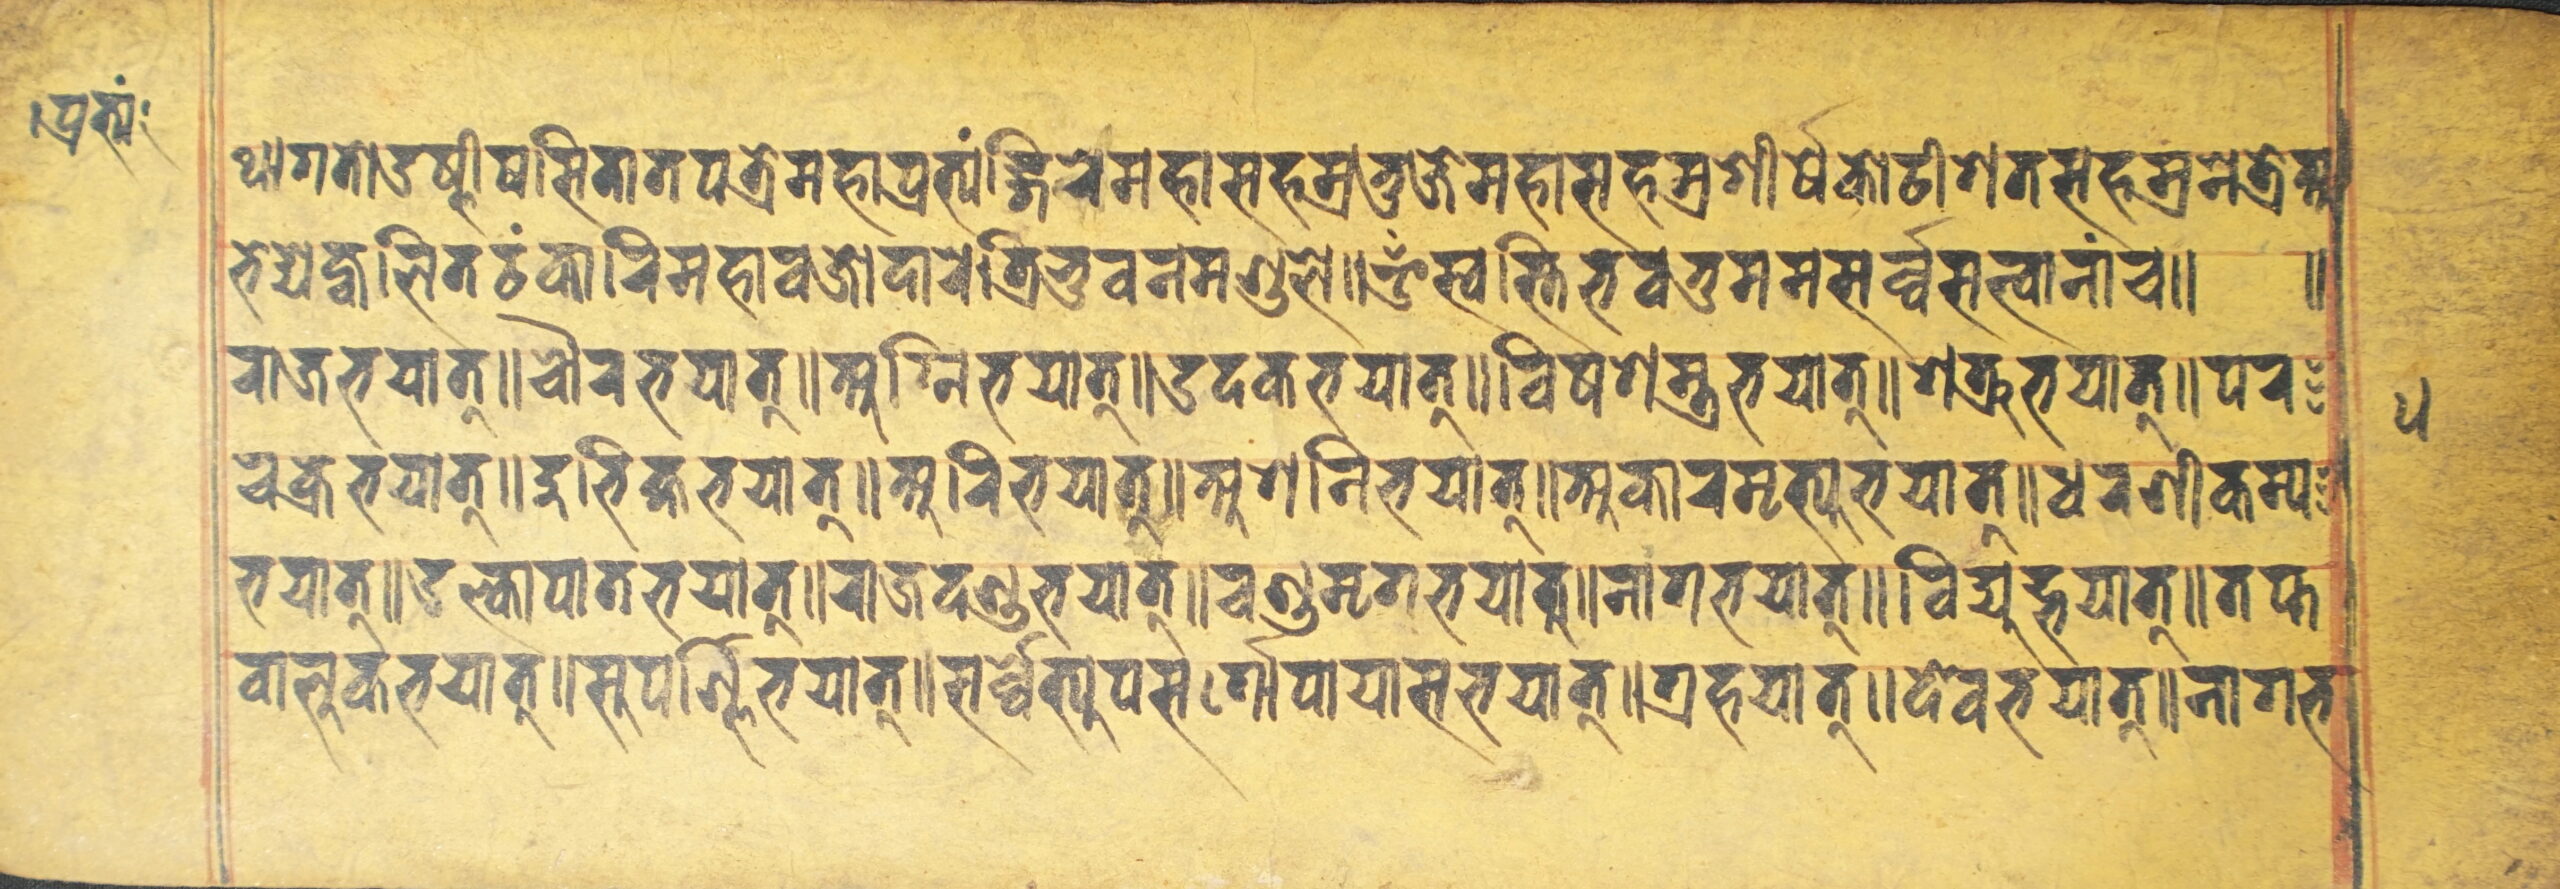 प्रत्यं
थागतोउष्णीषसितातपत्रेमहाप्रत्यंङ्गिरेमहासहस्रभुजेमहासहस्रशीर्षेकोटीशतसहस्रनेत्रेअ
भेद्यज्वलितटंकारिमहावज्रोदारेत्रिभुवनमण्डले॥ॐस्वस्तिभवतुममसर्व्वसत्वानांच॥ ॥
राजभयात्॥चौरभयात्॥अग्निभयात्॥उदकभयात्॥विषशस्त्रभयात्॥शत्रुभयात्॥पर
चक्रभयात्॥दुर्भिक्षभयात्॥अरिभयात्॥अशनिभयात्॥अकारमृत्युभयात्॥धरणीकम्प
भयात्॥उल्कापातभयात्॥राजदण्डभयात्॥चण्डमृगभयात्॥नागभयात्॥विद्युद्भयात्॥तप्त
वालुकभयात्॥सुपर्ण्णिभयात्॥सर्व्वेत्युपसर्गोपायासभयात्॥ग्रहयात्॥देवभयात्॥नागभ
५